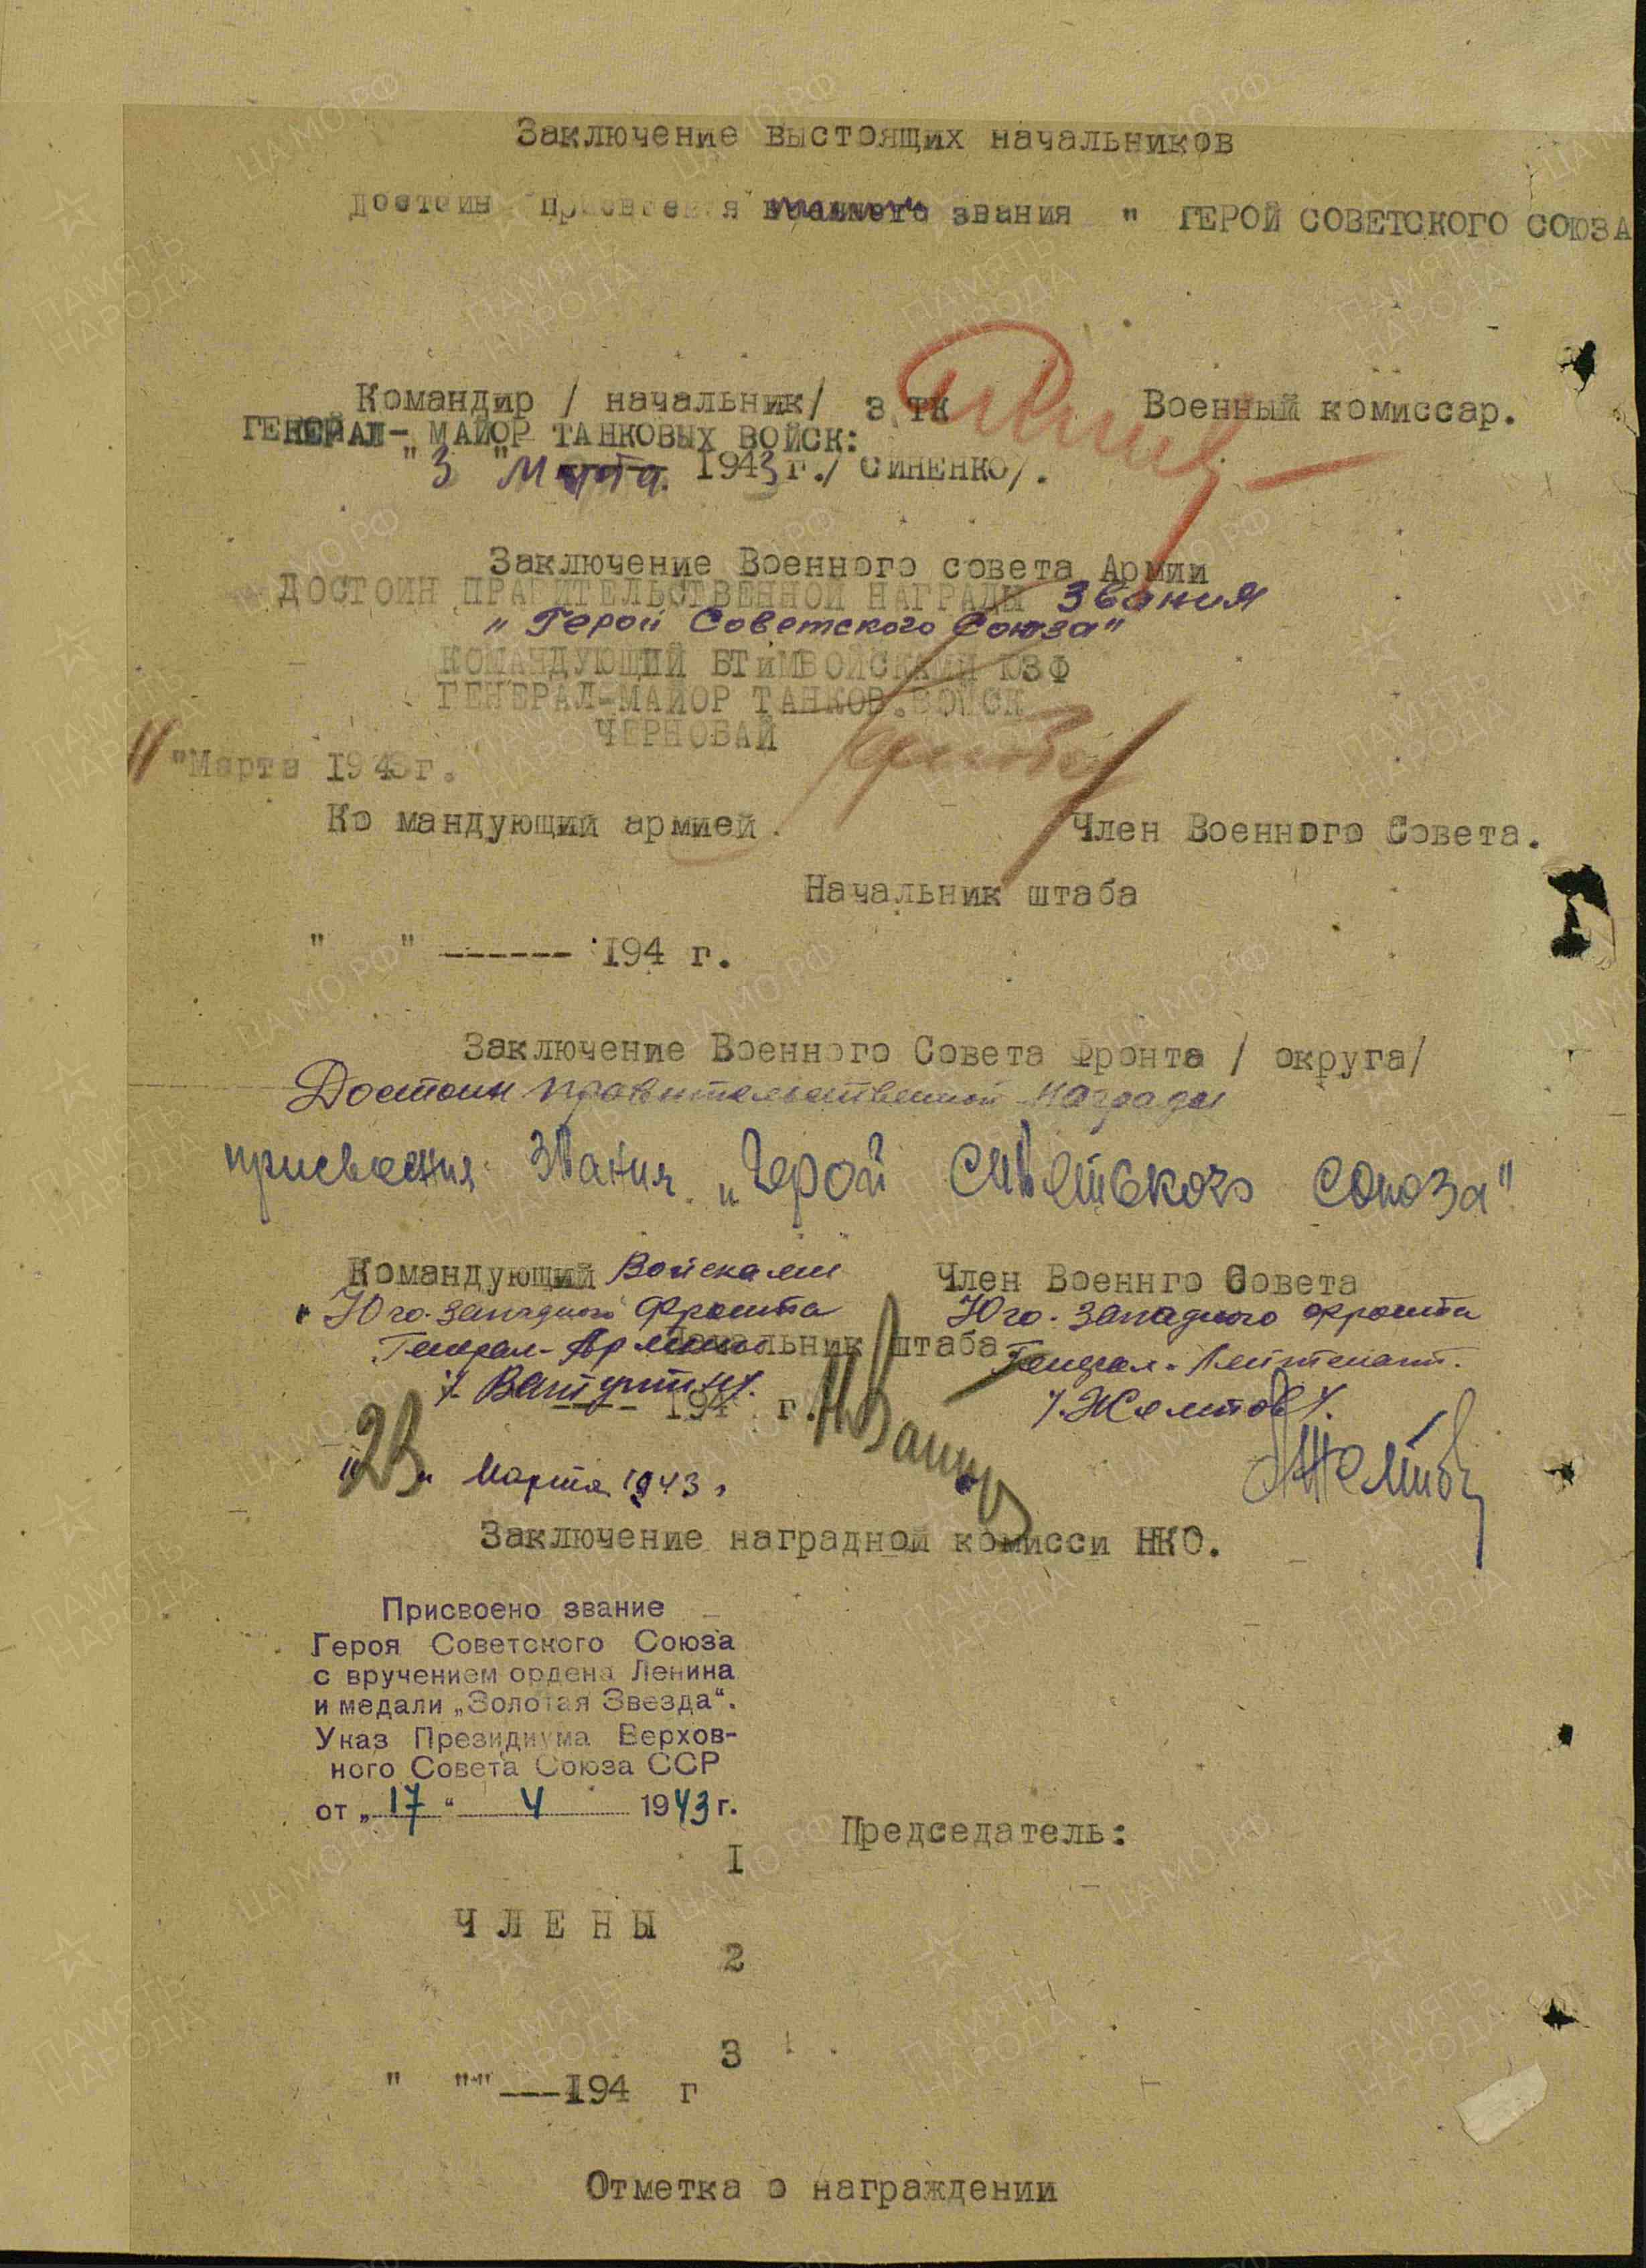 Заключение выстоящих начальников
достоин присвоения военного звания " ГЕРОЙ СОВЕТСКОГО СОЮЗА
Командир / начальник/ 3 тк Военный комиссар.
ГЕНЕРАЛ- МАЙОР ТАНКОВЫХ ВОЙСК:
" 3 " Марта. 1943 г./ СИНЕНКО/.
Заключение Военного совета Армии
ДОСТОИН ПРАВИТЕЛЬСТВЕННОЙ НАГРАДЫ звания
„ Герой Советского Союза"
КОМАНДУЮЩИЙ БТиМВОЙСКАМИ ЮЗФ
ГЕНЕРАЛ-МАЙОР ТАНКОВ.ВОЙСК
ЧЕРНОБАЙ
11 "Марта 1943г.
Ко мандующий армией. Член Военного Совета.
Начальник штаба
" " ------ 194 г.
Заключение Военного Совета Фронта / округа/
Достоин правительственной награды
присвоения звания „Герой Советского Союза"
Командующий Войсками Член Военнго Совета
Юго-западного фронта Юго-западного фронта
Начальник штаба
Генерал-Армии Генерал-Лейтенант.
/-Ватутин/. /.Желтов/.
---- 194 г.
"23" Марта 1943 г
Заключение наградной комисси НКО.
Присвоено звание
Героя Советского Союза
с вручением ордена Ленина
и медали „Золотая Звезда".
Указ Президиума Верхов-
ного Совета Союза ССР
от „ 17 " 4 1943 г.
Председатель:
I
ЧЛЕНЫ
2
3
" """---194 г
Отметка о награждении
ПАМЯТЬ НАРОДА
ЦА МО РФ